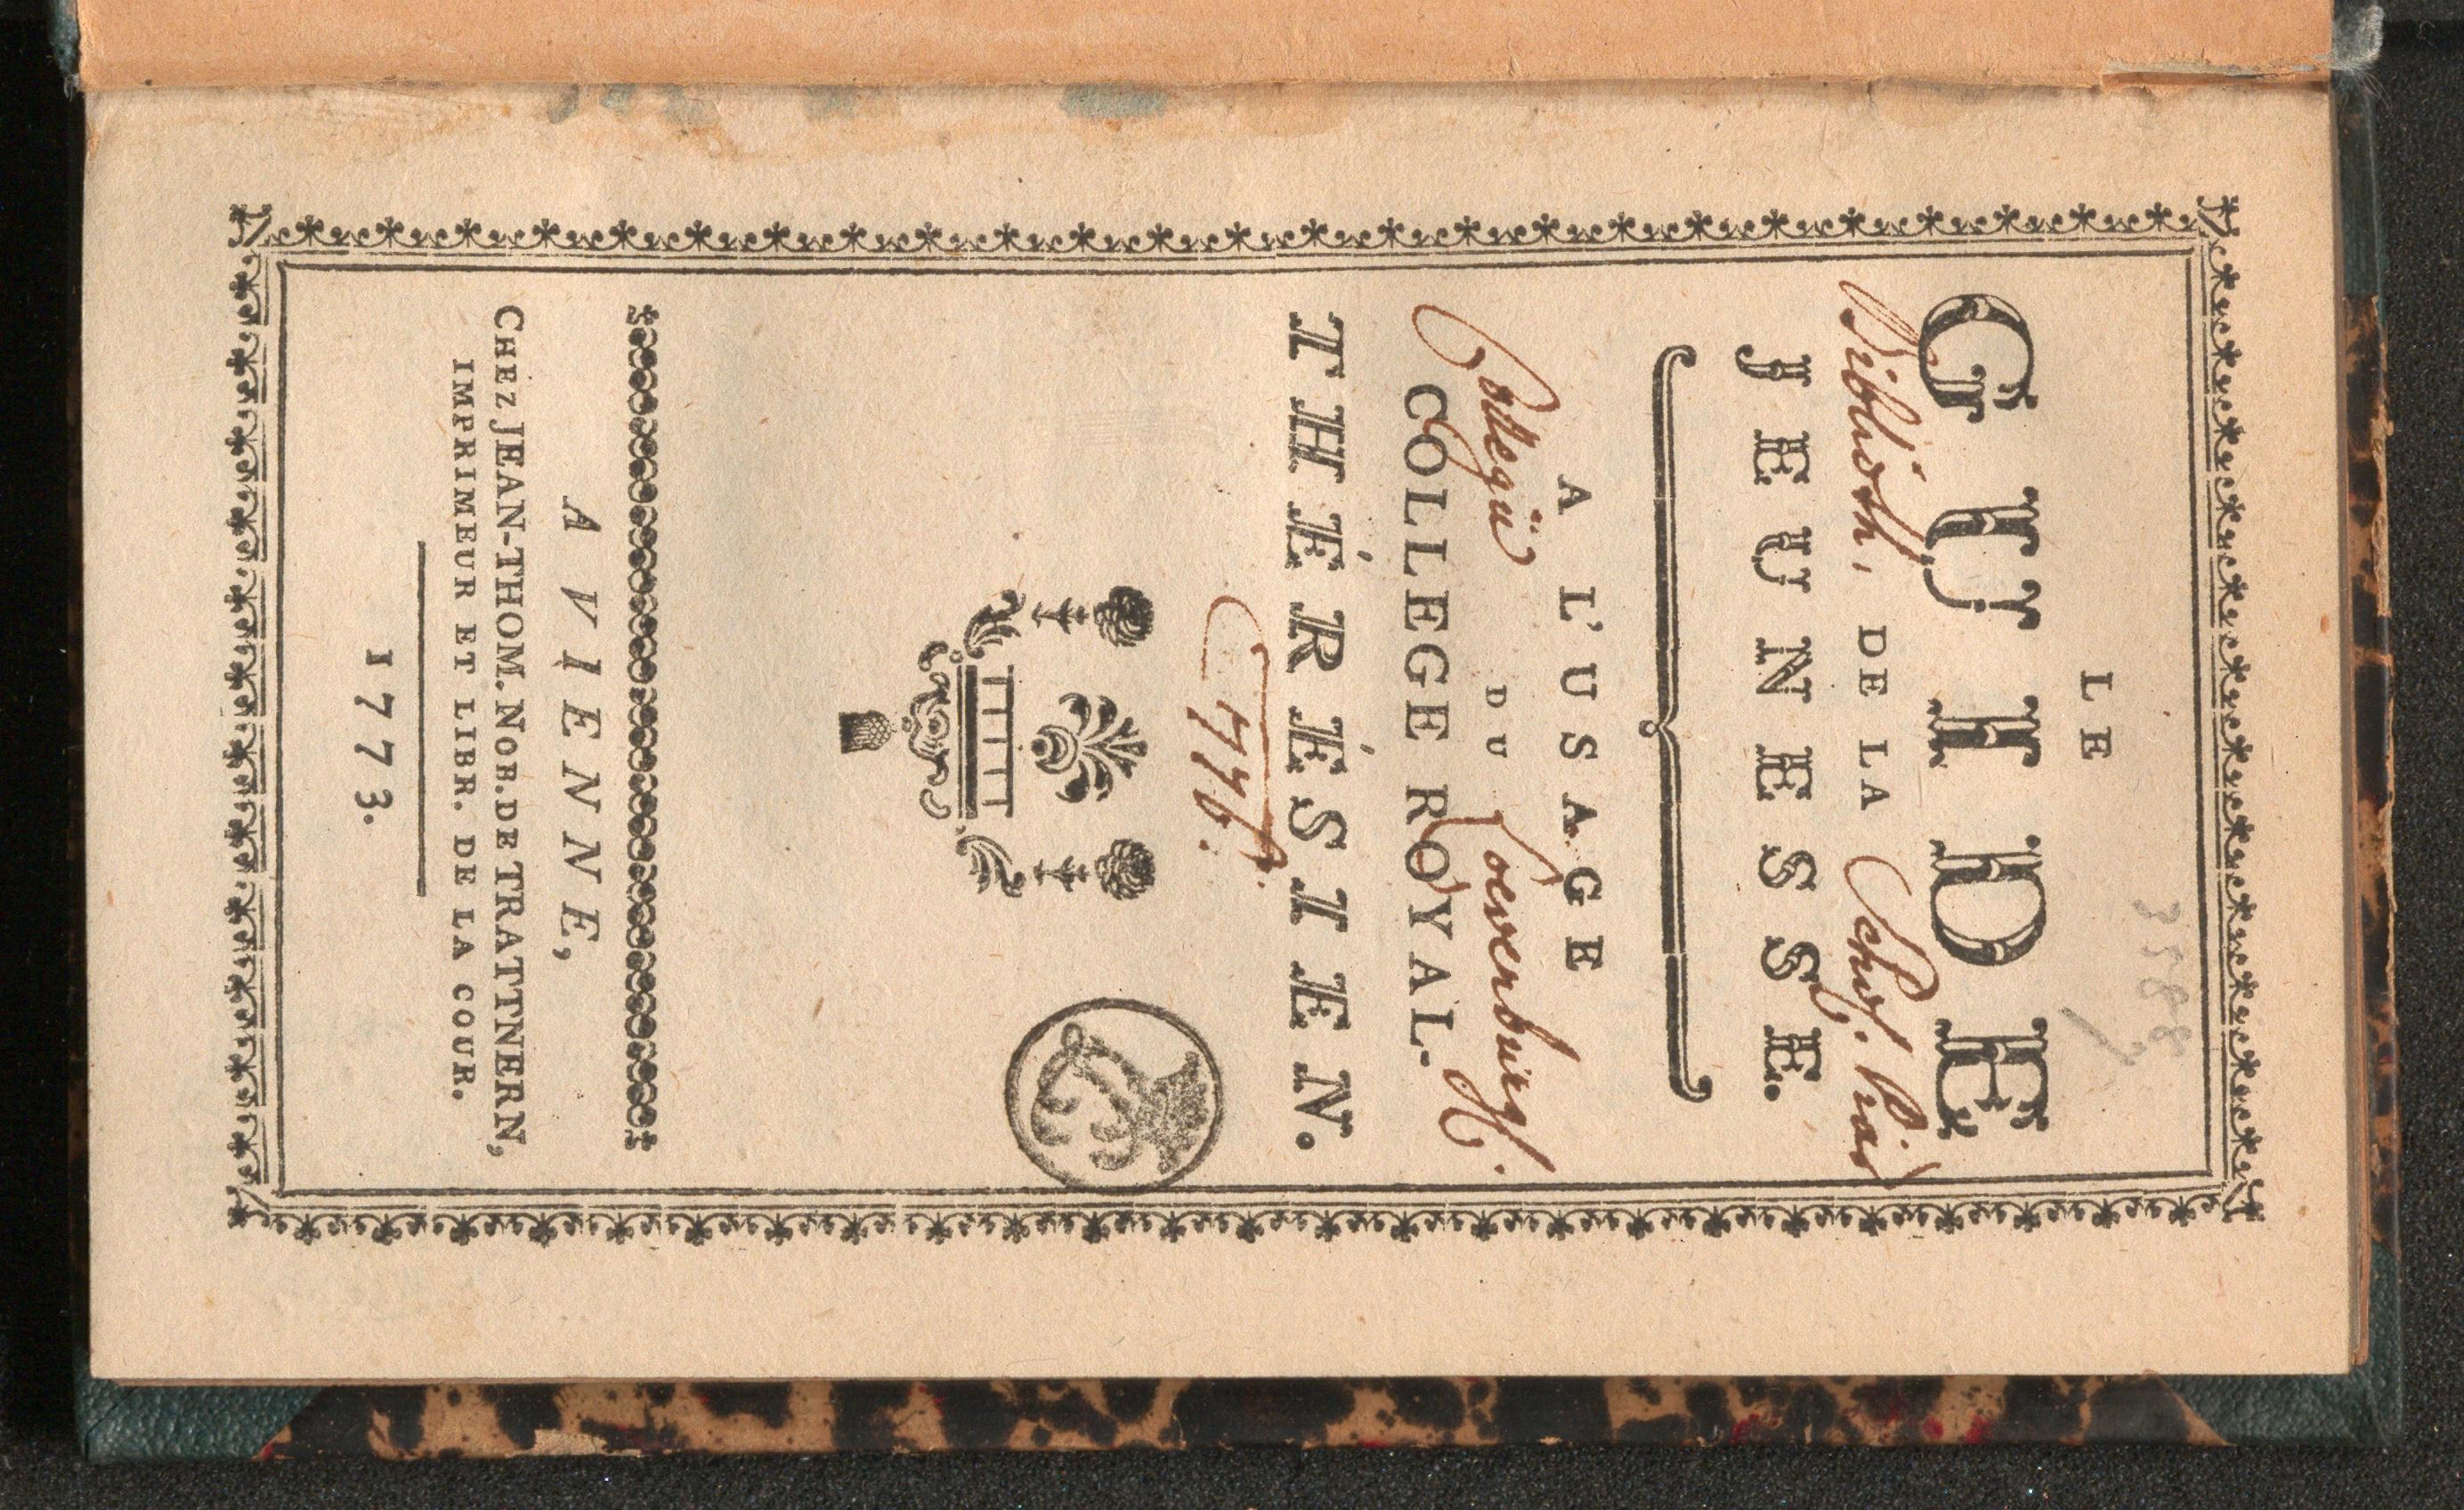 3588
LE
GUIDE
Biblioth. Schol. Piar
DE LA
JEUNESSE.
A L'USAGE
Collegii Loewenburgici
DU
COLLEGE ROYAL
THÉRÉSIEN.
1776.
A VIENNE,
CHEZ JEAN-THOM. NOB. DE TRATTNERN,
IMPRIMEUR ET LIBR. DE LA COUR.
1773.